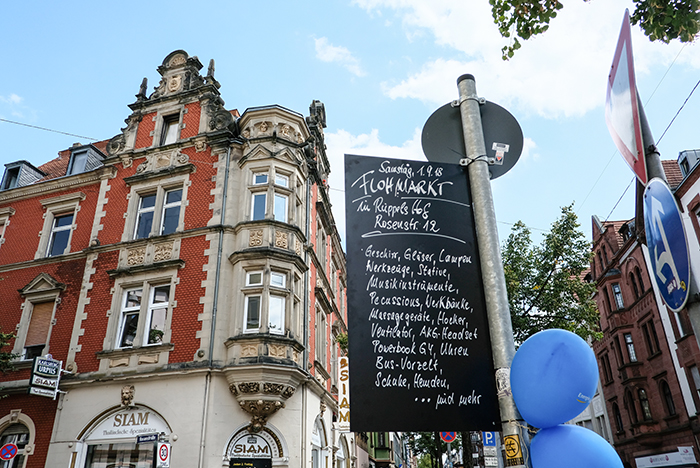 Samstag, 1.9.18
FLOHMARKT
in Rüppels Hof
Rosenstr. 12
Geschirr, Gläser, Lampen
Werkzeuge, Stative,
Musikinstrumente,
Pecussions, Werkbänke,
Massagegeräte, Hocker,
Ventilator, AKG-Headset
Powerbook G4, Uhren
Bus-Vorzelt,
Schuhe, Hemden,
... und mehr
KARLSBERG
URPILS
SIAM
SIAM
Thailändische Spezialitäten
SIAM
SIAM
P